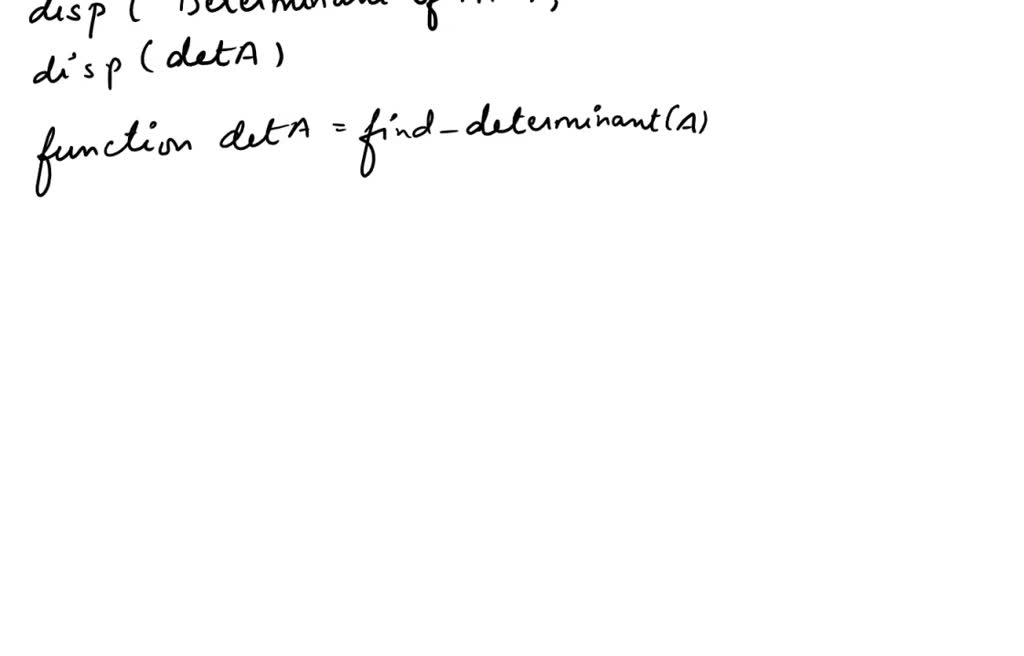 disp ( "Determinant of
disp (detA)
function detA = find_determinant(A)